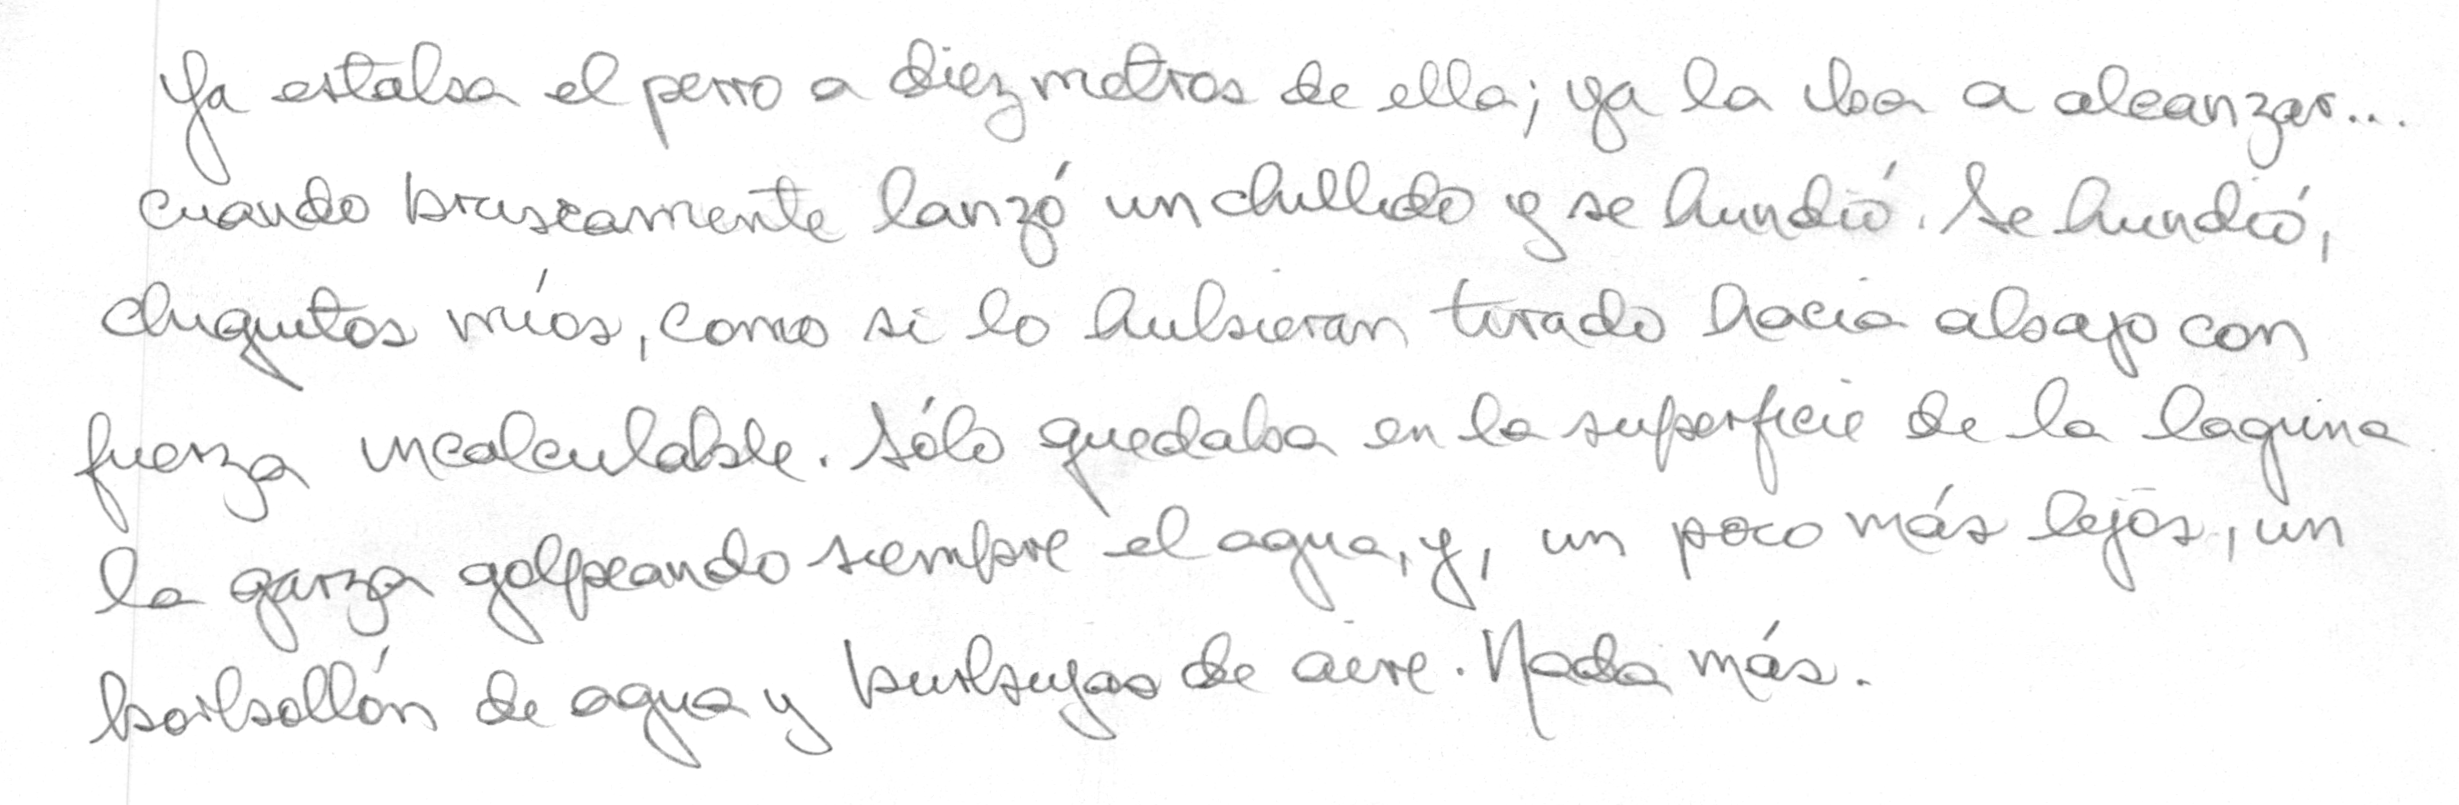 Ya estaba el perro a diez metros de ella; ya la iba a alcanzar...
cuando bruscamente lanzó un chillido y se hundió. Se hundió,
chiquitos míos, como si lo hubieran tirado hacia abajo con
fuerza incalculable. Sólo quedaba en la superficie de la laguna
la garza golpeando siempre el agua, y, un poco más lejos, un
borbollón de agua y burbujas de aire. Nada más.